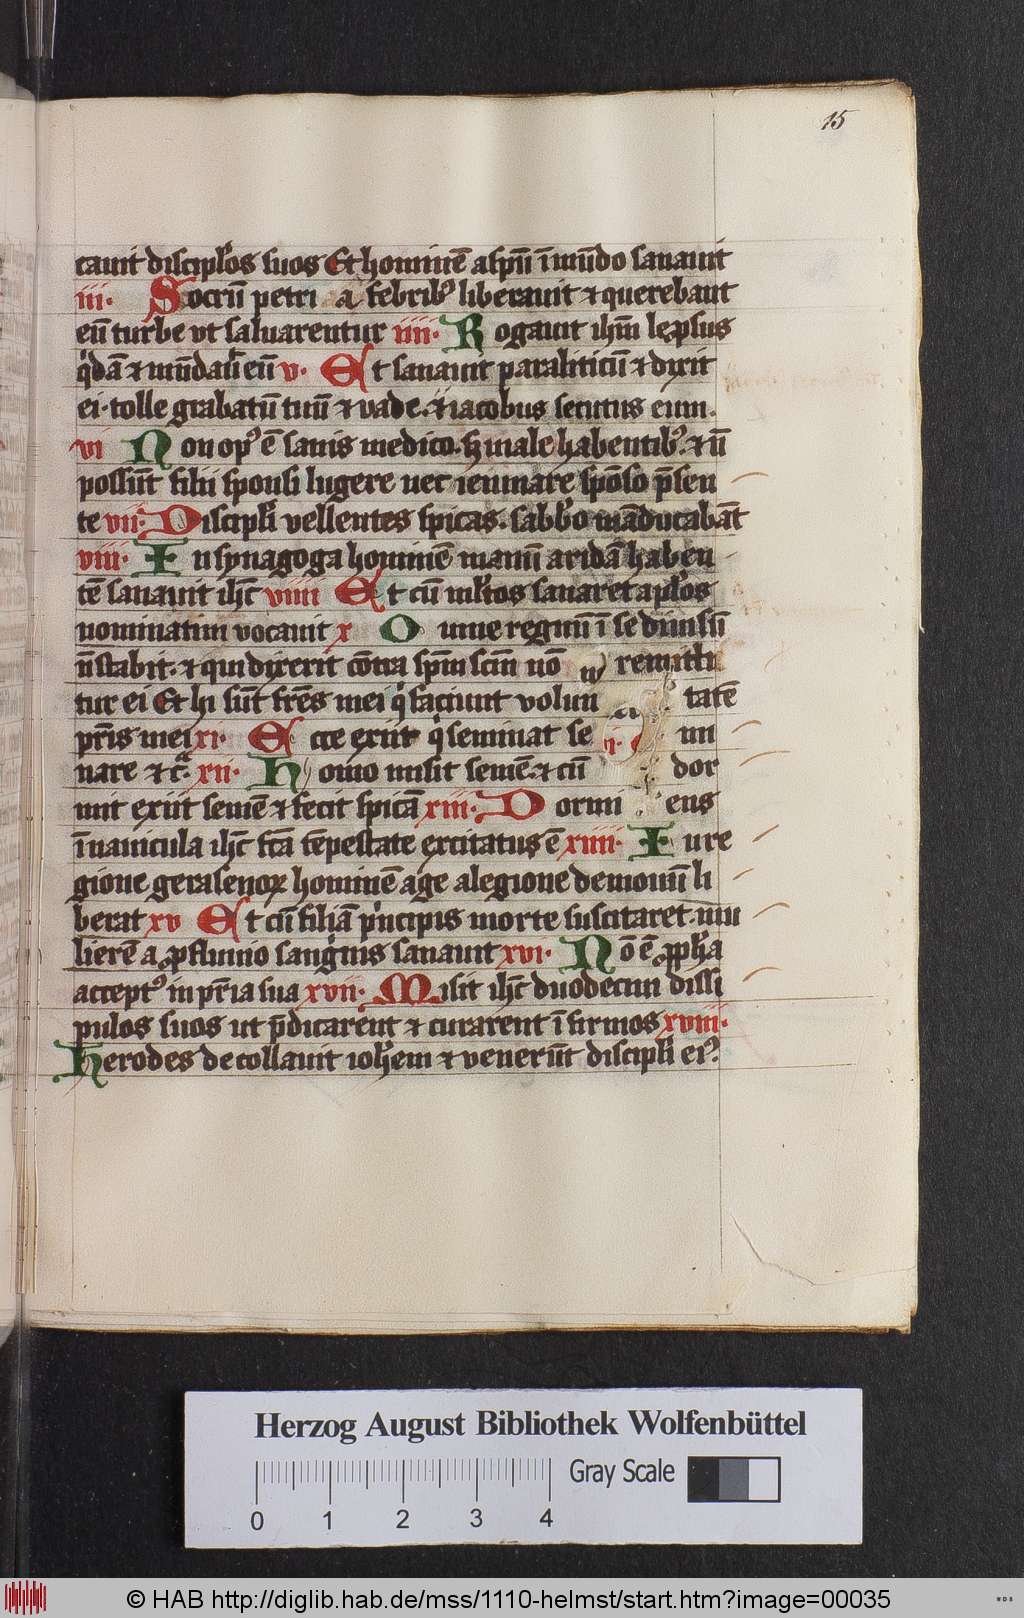 15
cauit discipl'os suos Et hominē a sp̄u īmūdo sanauit
iii. Socrū petri a febribꝰ liberauit ⁊ querebant
eū turbe vt saluarentur iiii. Rogauit ih̄m lep̄sus
q̇dā ⁊ mūdauit eū v. Et sanauit paraliticū ⁊ dixit
ei. tolle grabatū tuū ⁊ vade. ⁊ iacobus secutus eum.
vi Non opꝰ ē sanis medico. sꝫ male habentibꝰ. ⁊ n̄
possūt filii sponsi lugere nec ieiunare spōso p̄sen
te vii. Discipl'i vellentes spicas. sabb'o māducabāt
viii. In synagoga hominē manū aridā haben
tē sanauit ih̄c viiii Et cū ml'tos sanaret apl'os
nominatim vocauit x Omne regnū ī se diuisū
n̄ stabit. ⁊ qui dixerit cōtra sp̄m sc̄m nō remitti
tur ei Et hi sūt fr̄es mei q̇ faciunt volun tatē
pr̄is mei xi. Ecce exiit q̇ seminat se mi
nare ⁊ c̄ xii. Homo misit semē. ⁊ cū dor
mit exiit semē ⁊ fecit spicā xiii. Dormi ens
ī nauicula ih̄c fc̄a tēpestate excitatus ē xiiii. In re
gione gerasenoꝝ hominē age a legione demoniū li
berat xv Et cū filiā p'ncipis morte suscitaret. mu
lierē a ꝓfluuio sangnis sanauit xvi. Nō ē ꝓph'a
acceptꝰ in pr̄ia sua xvii. Misit ih̄c duodecim disci
pulos suos ut p̄dicarent ⁊ curarent īfirmos xviii.
Herodes decollauit ioh'em ⁊ venerūt discipl'i eiꝰ.
Herzog August Bibliothek Wolfenbüttel
Gray Scale
0 1 2 3 4
© HAB http://diglib.hab.de/mss/1110-helmst/start.htm?image=00035